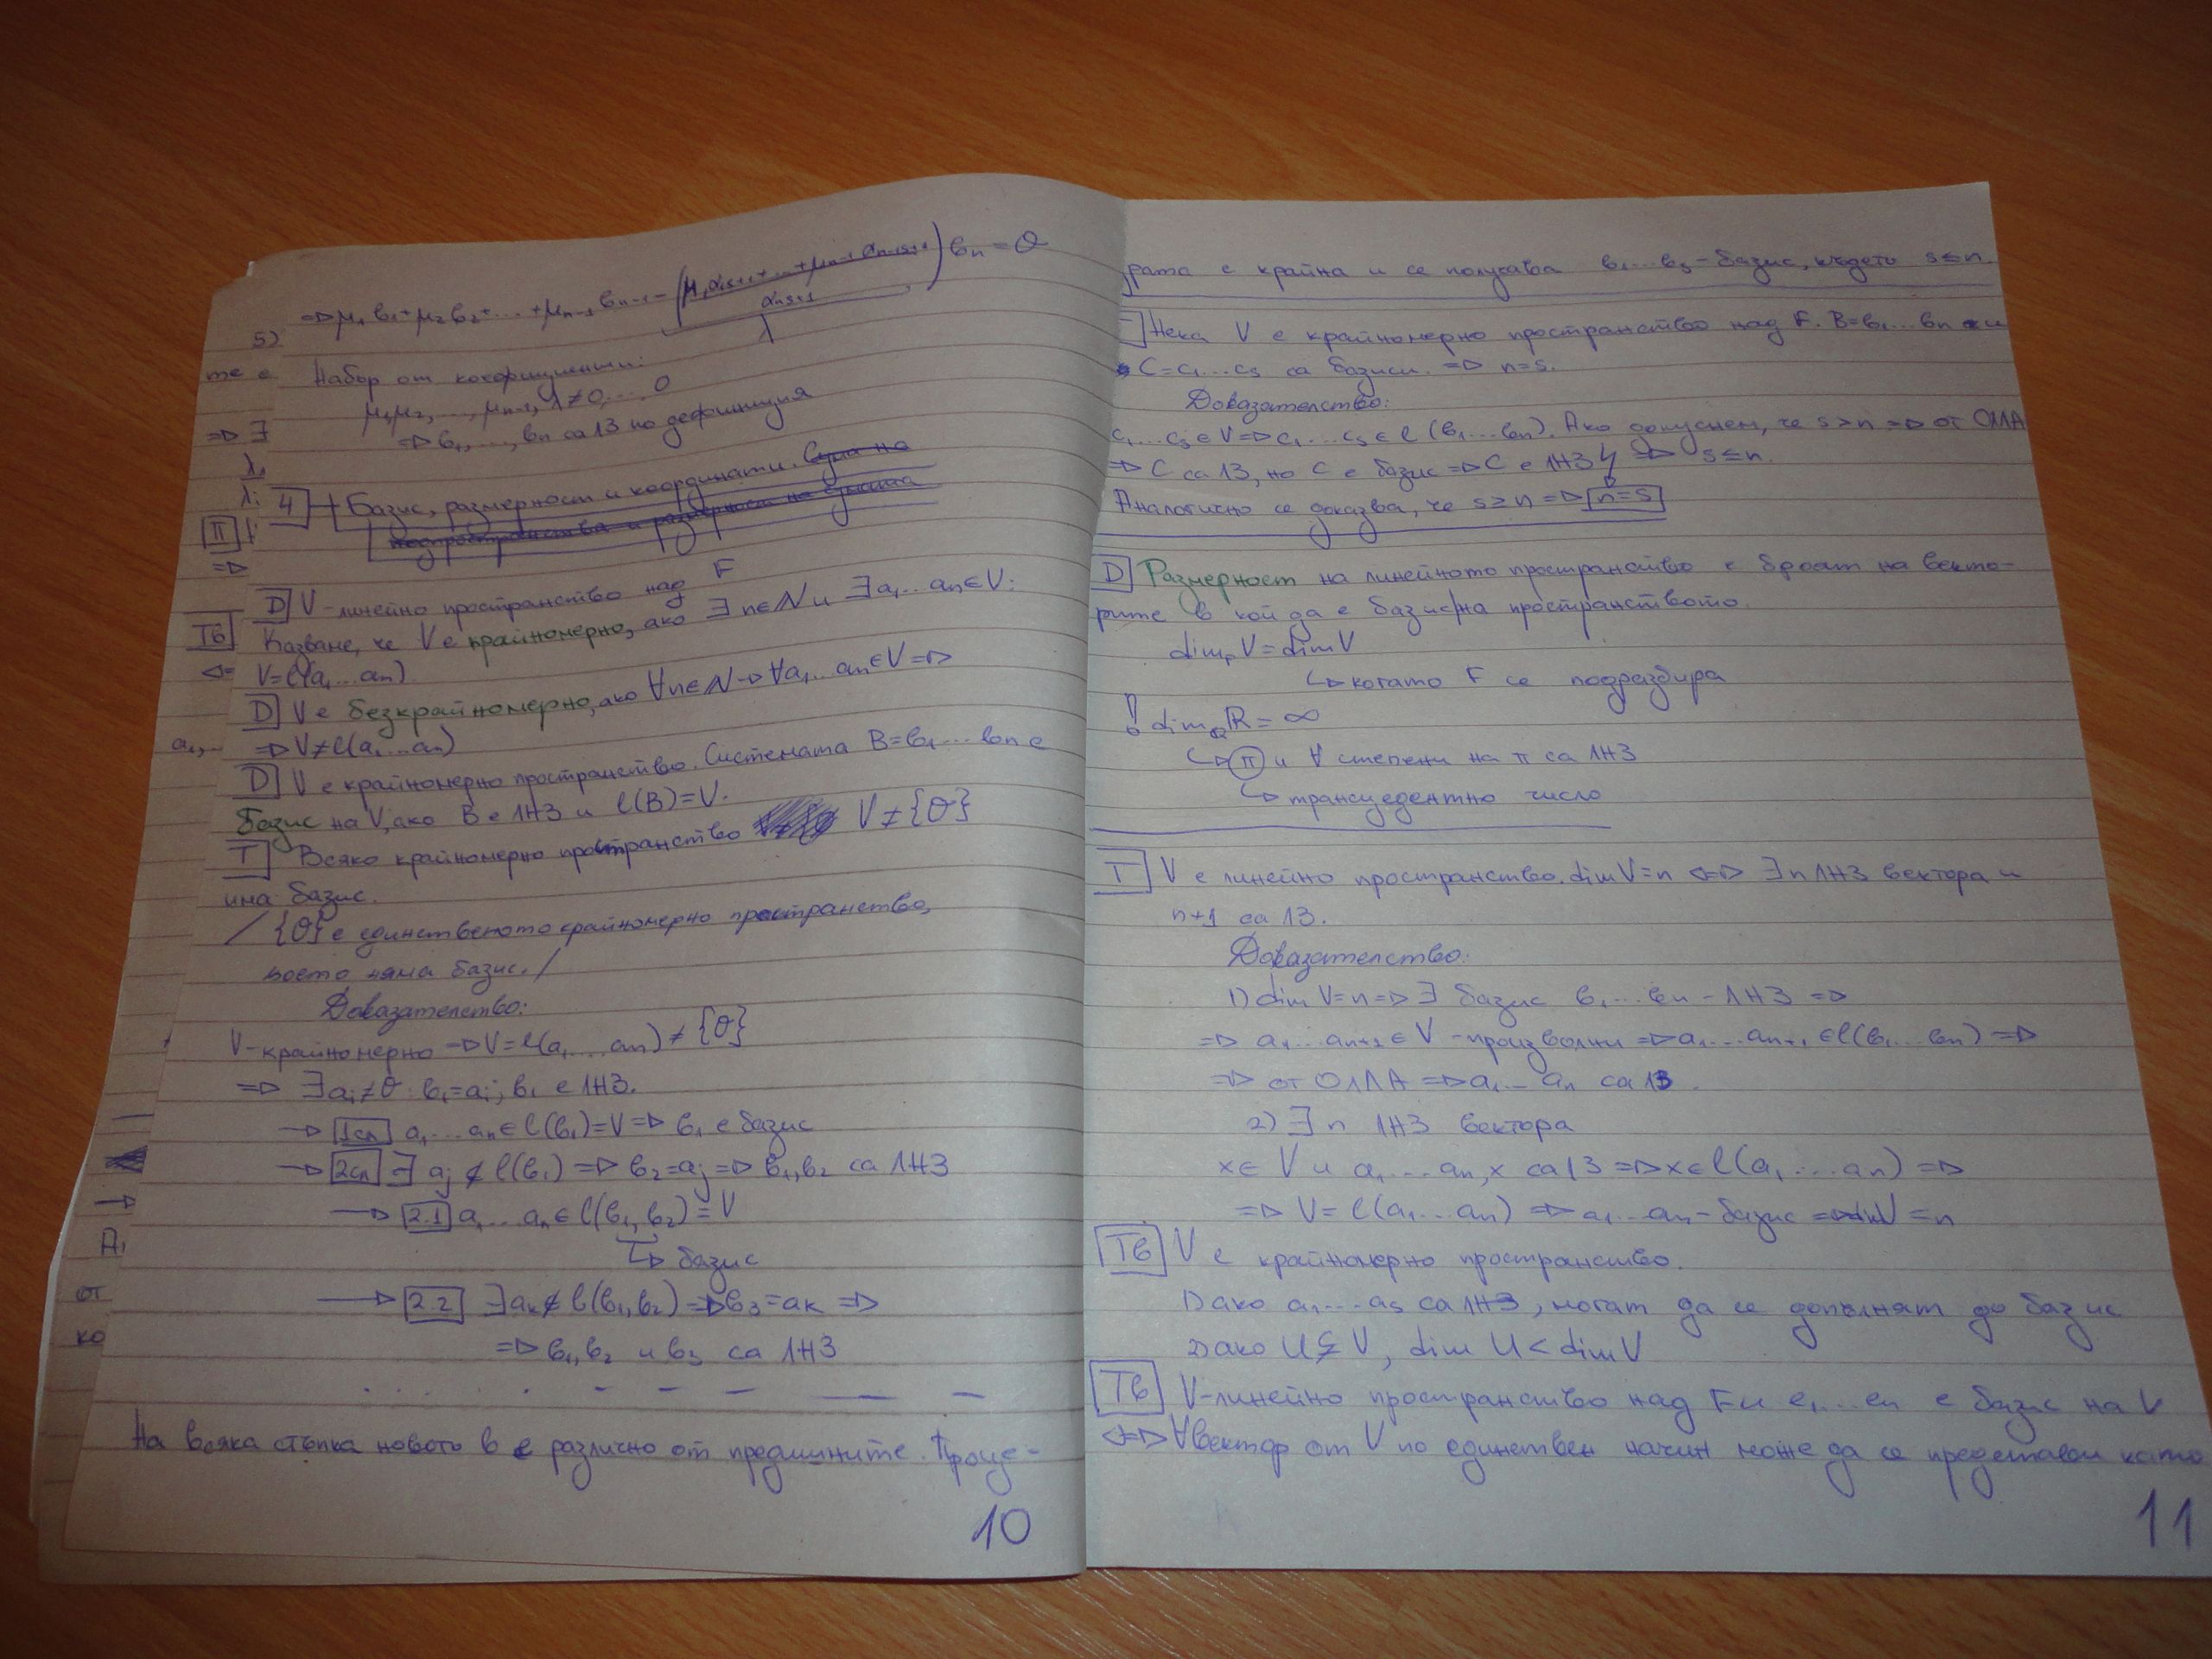 => μ₁b₁+μ₂b₂+...+μₙ₋₁bₙ₋₁ - ( ) bₙ = θ
λ
Набор от коефициенти:
μ₁μ₂, ..., μₙ₋₁, λ ≠ 0, ..., 0
=> b₁, ..., bₙ са ЛЗ по дефиниция
4 Базис, размерност и координати. Сума на
подпространства и размерност на сумата
D V - линейно пространство над F
Казваме, че V е крайномерно, ако ∃ n∈N и ∃ a₁...aₙ∈V:
V=ℓ(a₁...aₙ)
D V е безкрайномерно, ако ∀n∈N → ∀a₁...aₙ∈V =>
=> V≠ℓ(a₁...aₙ)
D V е крайномерно пространство. Системата B=b₁...bₙ е
базис на V, ако B е ЛНЗ и ℓ(B)=V.
T Всяко крайномерно пространство V≠{θ}
има базис.
/ {θ} е единственото крайномерно пространство,
което няма базис. /
Доказателство:
V - крайномерно => V=ℓ(a₁...aₙ) ≠ {θ}
=> ∃aᵢ≠θ: b₁=aᵢ; b₁ е ЛНЗ.
→ 1сл a₁...aₙ∈ℓ(b₁)=V => b₁ е базис
→ 2сл ∃ aⱼ ∉ ℓ(b₁) => b₂=aⱼ => b₁,b₂ са ЛНЗ
→ 2.1 a₁...aₙ∈ℓ(b₁,b₂)=V
↳ базис
→ 2.2 ∃aₖ∉ℓ(b₁,b₂) => b₃=aₖ =>
=> b₁,b₂ и b₃ са ЛНЗ
На всяка стъпка новото b е различно от предишните. Проце-
10
рата е крайна и се получава b₁...bₛ - базис, където s≤n.
Нека V е крайномерно пространство над F. B=b₁...bₙ и
C=c₁...cₛ са базиси. => n=s.
Доказателство:
c₁...cₛ∈V => c₁...cₛ∈ℓ(b₁...bₙ). Ако допуснем, че s>n => от ОЛЛА
=> C са ЛЗ, но C е базис => C е ЛНЗ ↯ => s≤n.
Аналогично се доказва, че s≥n => n=s
D Размерност на линейното пространство е броят на векто-
рите в кой да е базис на пространството.
dim_F V=dim V
↳ когато F се подразбира
! dim_Q ℝ = ∞
↳ π и ∀ степени на π са ЛНЗ
↳ трансцедентно число
T V е линейно пространство. dim V=n <=> ∃ n ЛНЗ вектора и
n+1 са ЛЗ.
Доказателство:
1) dim V=n => ∃ базис b₁...bₙ - ЛНЗ =>
=> a₁...aₙ₊₁∈V - произволни => a₁...aₙ₊₁∈ℓ(b₁...bₙ) =>
=> от ОЛЛА => a₁...aₙ са ЛЗ.
2) ∃ n ЛНЗ вектора
x∈V и a₁...aₙ,x са ЛЗ => x∈ℓ(a₁...aₙ) =>
=> V=ℓ(a₁...aₙ) => a₁...aₙ - базис => dimV=n
Тв V е крайномерно пространство.
1) ако a₁...aₛ са ЛНЗ, могат да се допълнят до базис
2) ако U⊊V, dim U<dim V
Тв V - линейно пространство над F и e₁...eₙ е базис на V
<=> ∀вектор от V по единствен начин може да се представи като
11